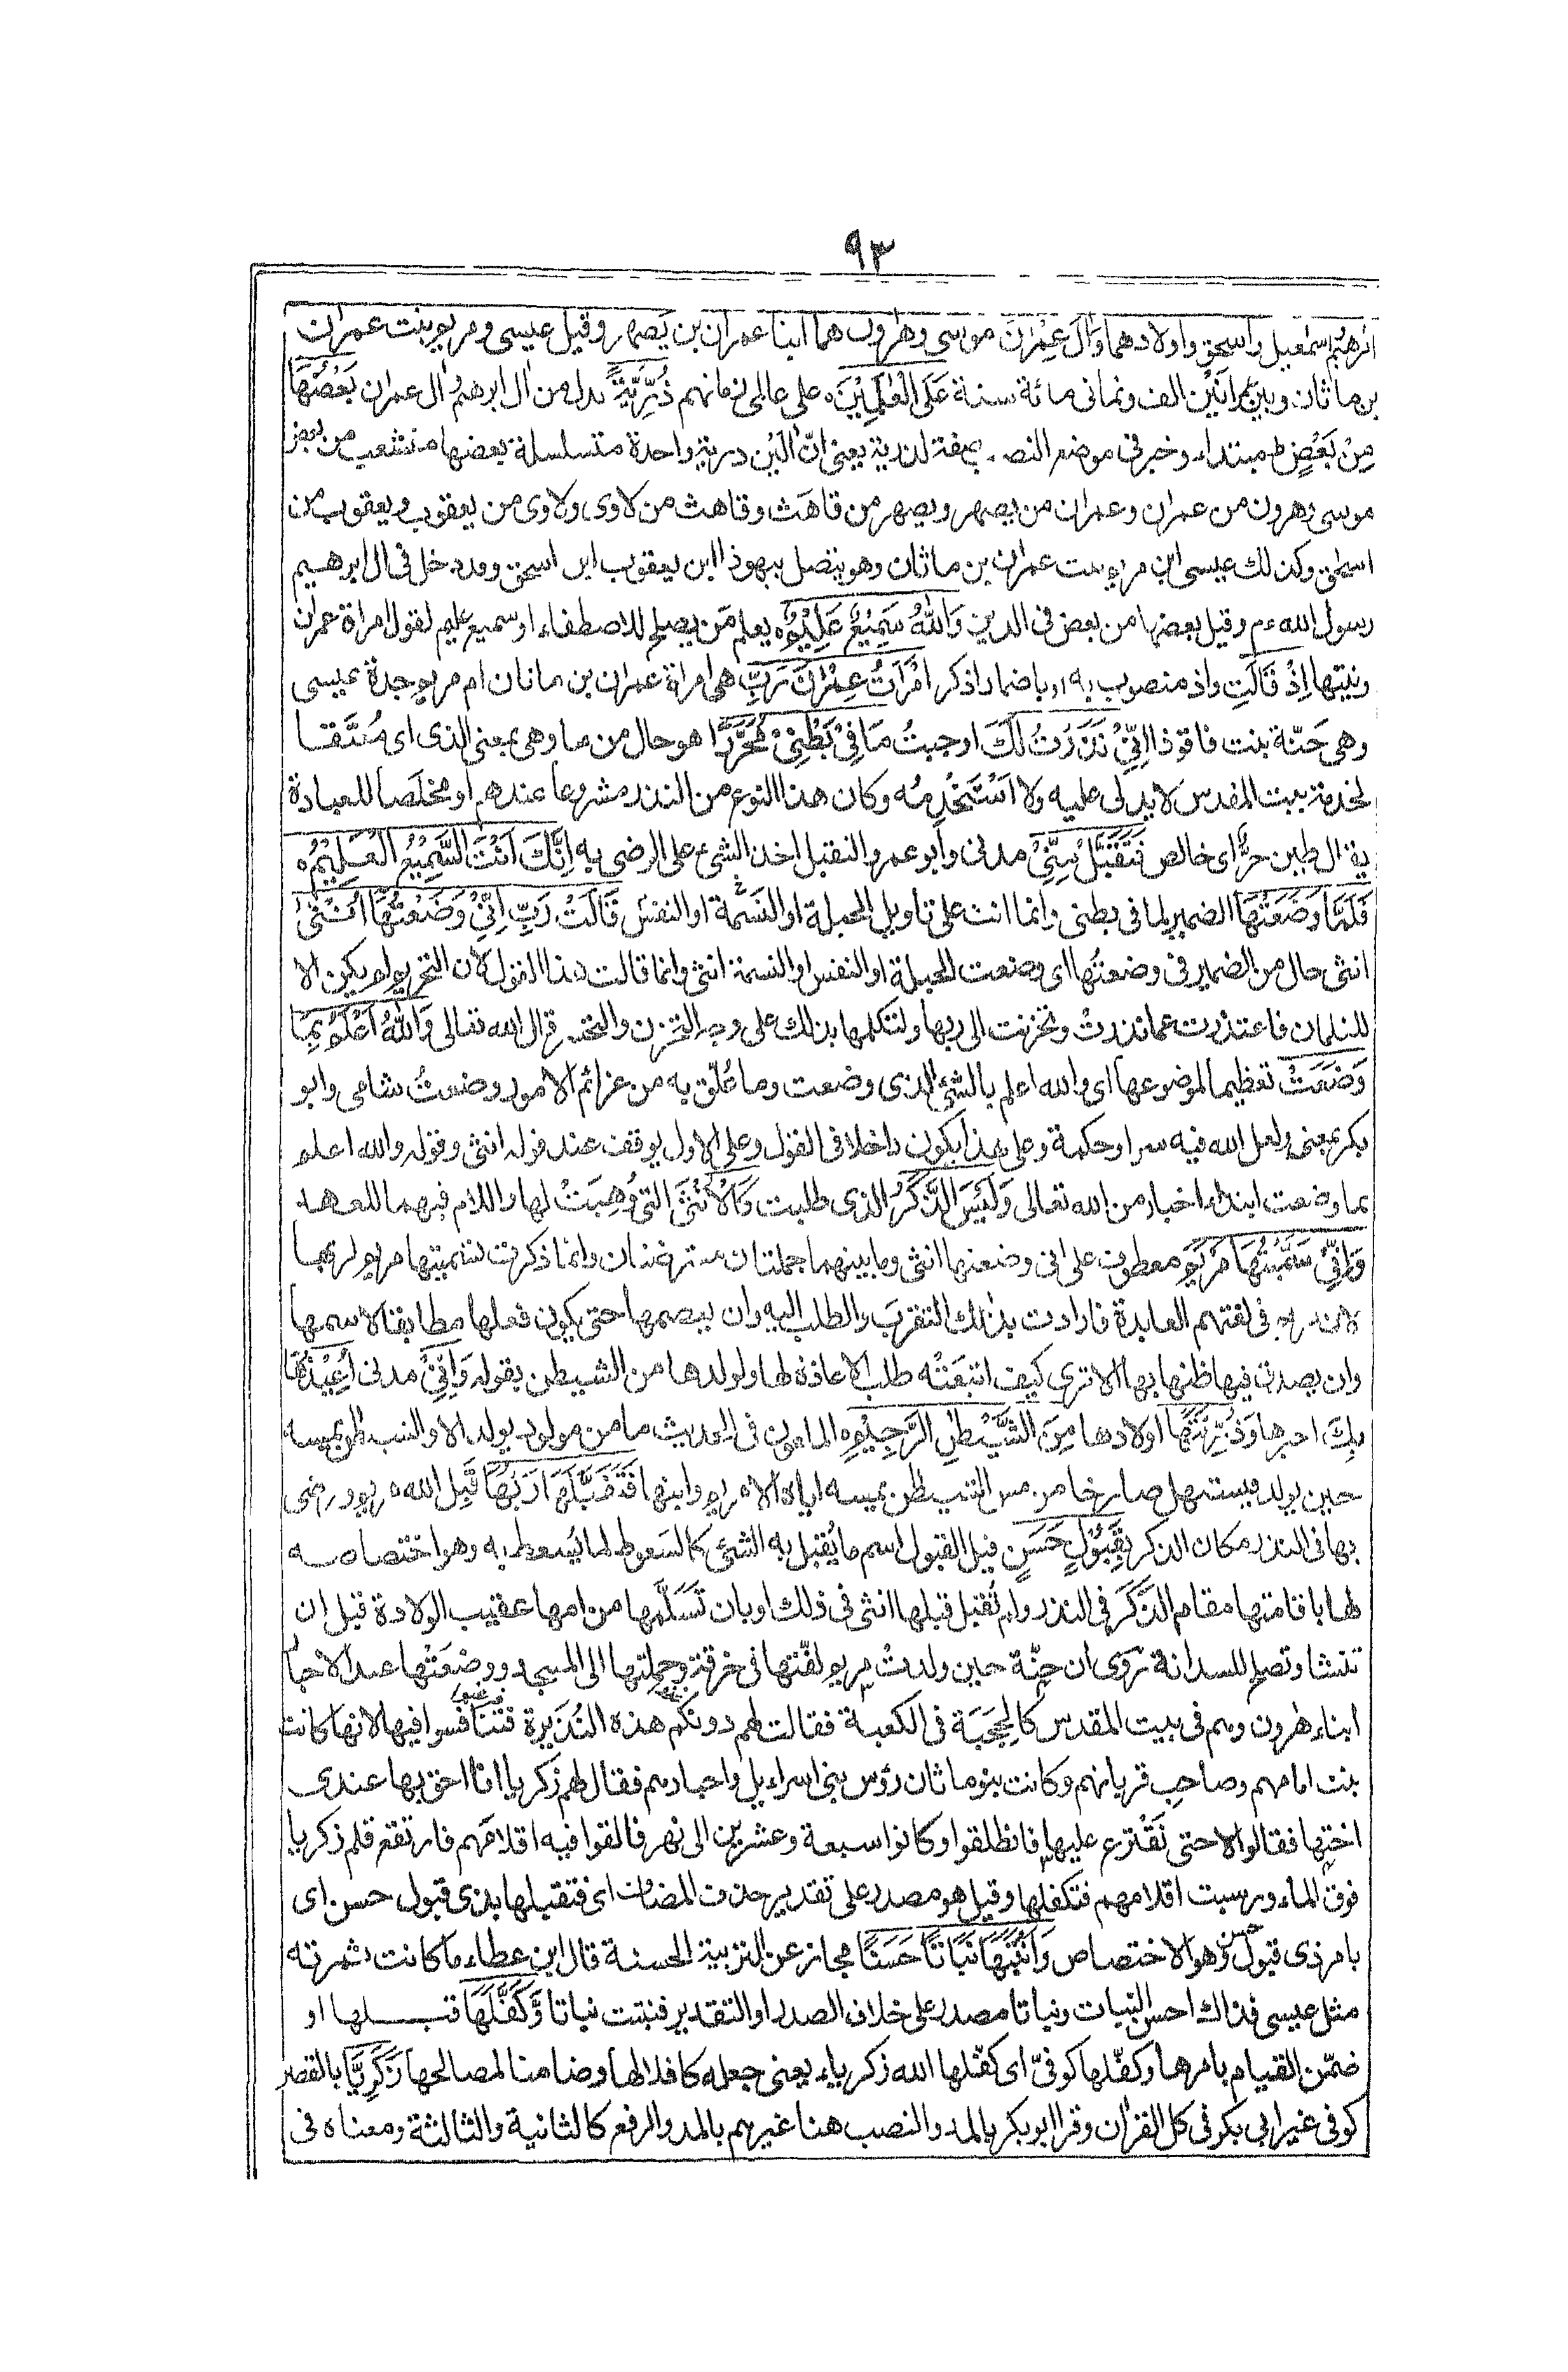 ٩٣
ابرهيم اسمعيل واسحق واولادهما وَاٰلَ عِمْرٰنَ موسى وهٰرون هما ابنا عمران بن يَصهر وقيل عيسى ومريم بنت عمران
بن ماثان وبين العمرانَين الف وثمانى مائة سنة عَلَى الْعٰلَمِيْنَ على عالمى زمانهم ذُرِّيَّةًۢ بدل من اٰل ابرهيم واٰل عمران بَعْضُهَا
مِنْۢ بَعْضٍ ط مبتداء وخبر فى موضع النصب صفة لذرية يعنى انّ الاٰلَيْن ذرية واحدة متسلسلة بعضها متشعب من بعض
موسى وهرون من عمران وعمران من يصهر ويصهر من قاهَث وقاهث من لاوى ولاوى من يعقوب ويعقوب من
اسحٰق وكذلك عيسى ابن مريم بنت عمران بن ماثان وهو يتصل بيهوذا ابن يعقوب ابن اسحق وقد دخل فى اٰل ابرهيم
رسول الله ءم وقيل بعضها من بعض فى الدين وَاللّٰهُ سَمِيْعٌ عَلِيْمٌ يعلم مَن يصلح للاصطفاء او سميع عليم لقول امراة عمران
ونيتها اِذْ قَالَتِ واذ منصوب به او باضمار اذكر امْرَاَتُ عِمْرٰنَ رَبِّ هى امراة عمران بن ماثان ام مريم جدة عيسى
وهى حَنّة بنت فاقوذا اِنِّىْ نَذَرْتُ لَكَ اوجبتُ مَا فِىْ بَطْنِىْ مُحَرَّرًا هو حال من ما وهى بمعنى الذى اى مُعتَقًا
لخدمة بيت المقدس لا يد لى عليه ولا اَسْتَخْدِمُه وكان هذا النوع من النذر مشروعا عندهم او مخلَصا للعبادة
يقال طين حرٌّ اى خالص فَتَقَبَّلْ مِنِّىْ مدنى وابو عمرو التقبل اخذ الشىء على الرضى به اِنَّكَ اَنْتَ السَّمِيْعُ الْعَلِيْمُ
فَلَمَّا وَضَعَتْهَا الضمير لما فى بطنى وانما انث على تاويل الحبلة او النَسَمَة او النفس قَالَتْ رَبِّ اِنِّىْ وَضَعْتُهَا اُنْثٰى
انثى حال من الضمير فى وضعتُها اى وضعت الحبلة او النفس او النسمة انثى وانما قالت هذا القول لان التحرير لم يكن الا
للغلمان فاعتذرت عما نذرتْ وتحزنت الى ربها ولتكلمها بذلك على وجه التحزن والتحسر قال الله تعالى وَاللّٰهُ اَعْلَمُ بِمَا
وَضَعَتْ تعظيما لموضوعها اى والله اعلم بالشئ الذى وضعت وما عُلّق به من عزائم الامور وضعتُ شامى وابو
بكر بمعنى ولعل الله فيه سرا وحكمة وعلى هذا يكون داخلا فى القول وعلى الاول يوقف عند قوله انثى وقوله والله اعلم
بما وضعت ابتداء اخبار من الله تعالى وَلَيْسَ الذَّكَرُ الذى طلبت كَالْاُنْثٰى التى وُهِبَتْ لها واللام فيهما للعهد
وَاِنِّىْ سَمَّيْتُهَا مَرْيَمَ معطوف على انى وضعتها انثى وما بينهما جملتان معترضتان وانما ذكرت تسميتها مريم لربها
لان مريم فى لغتهم العابدة فارادت بذلك التقرب والطلب اليه وان يعصمها حتى يكون فعلها مطابقا لاسمها
وان يصدق فيها ظنها بها الا ترى كيف اتبعَتْه طلب الاعاذة لها ولولدها من الشيطٰن بقوله وَاِنِّىْ مدنى اُعِيْذُهَا
بِكَ اجيرها وَذُرِّيَّتَهَا اولادها مِنَ الشَّيْطٰنِ الرَّجِيْمِ الملعون فى الحديث ما من مولود يولد الا والشيطٰن يمسه
حين يولد فيستهل صارخا من مس الشيطٰن يمسه اياه الا مريم وابنها فَتَقَبَّلَهَا رَبُّهَا قَبِل الله مريم ورضى
بها فى النذر مكان الذكر بِقَبُوْلٍ حَسَنٍ قيل القبول اسم ما يُقبل به الشئ كالسَعوط لما يُسعط به وهو اختصاصه
لها باقامتها مقام الذَّكَر فى النذر ولم تُقبل قبلها انثى فى ذلك او بان تَسَلَّمها من امها عقيب الولادة قبل ان
تنشا وتصلح للسدانة روى ان حنّة حين ولدتْ مريم لفّتها فى خرقة وحملتها الى المسجد ووضعَتْها عند الاحبار
ابناء هٰرون وهم فى بيت المقدس كالحَجَبَة فى الكعبة فقالت لهم دونكم هذه النُذيرة فتنافسوا فيها لانها كانت
بنت امامهم وصاحب قربانهم وكانت بنو ماثان رؤس بنى اسراءيل واحبارهم فقال لهم زكريا انا احق بها عندى
اختها فقالوا لا حتى نَقْترع عليها فانطلقوا وكانوا سبعة وعشرين الى نهر فالقوا فيه اقلامهم فارتفع قلم زكريا
فوق الماء ورسبت اقلامهم فتكفلها وقيل هو مصدر على تقدير حذف المضاف اى فتقبلها بذى قبول حسن اى
بامر ذى قبول حسن وهو الاختصاص وَاَنْبَتَهَا نَبَاتًا حَسَنًا مجاز عن التربية الحسنة قال ابن عطاء ما كانت ثمرته
مثل عيسى فذاك احسن النبات ونباتا مصدر على خلاف الصدر او التقدير فنبتت نباتا وَّكَفَّلَهَا قبلها او
ضمّن القيام بامرها وكفّلها كوفىّ اى كفّلها الله زكرياء يعنى جعله كافلا لها وضامنا لمصالحها زَكَرِيَّا بالقصر
كوفى غير ابى بكر فى كل القراٰن وقرا ابو بكر بالمد والنصب هنا غيرهم بالمد والرفع كالثانية والثالثة ومعناه فى